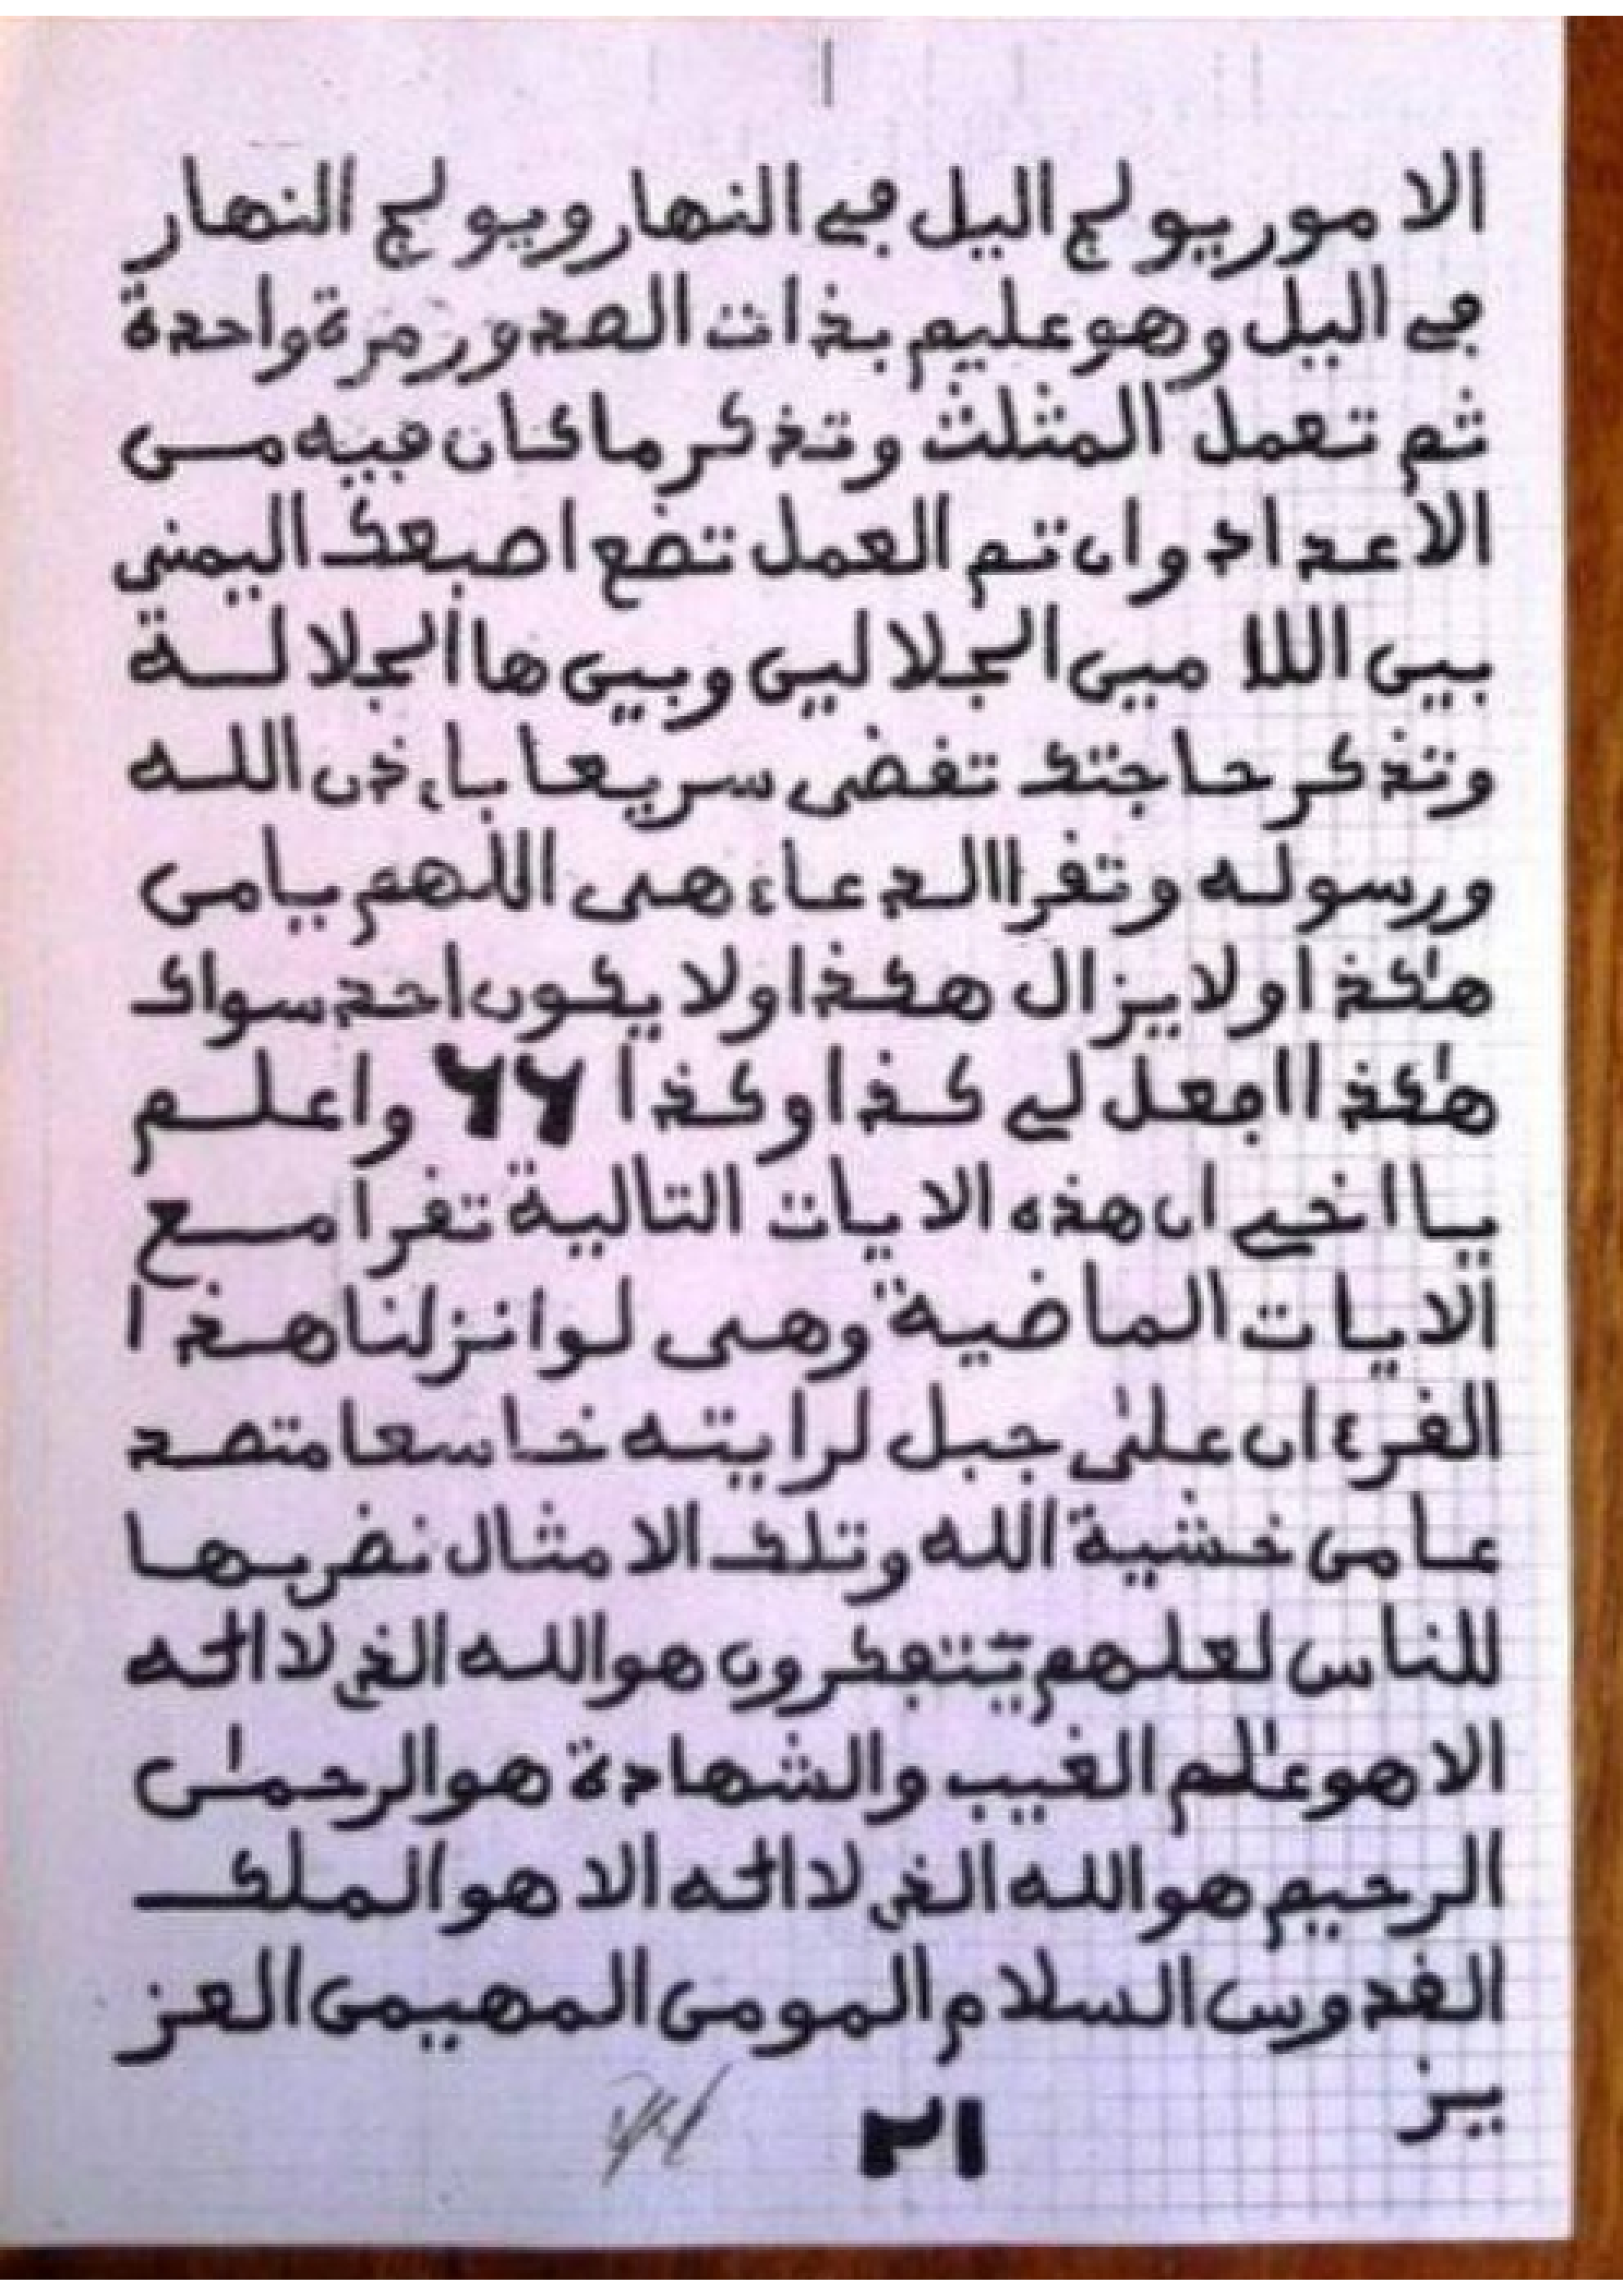 الامور يولج اليل في النهار ويولج النهار
في اليل وهو عليم بذات الصدور مرة واحدة
ثم تعمل المثلث وتذكر ما كان فيه من
الاعداد وان تم العمل تضع اصبعك اليمنى
بين اللا مين الجلالين وبين ها الجلالة
وتذكر حاجتك تقضى سريعا باءذن الله
ورسوله وتقرا الدعاء هى اللهم يا من
هٰكذا ولا يزال هكذا ولا يكون احد سواك
هٰكذا افعل لي كذا وكذا ٦٦ واعلم
يا اخي ان هذه الايات التالية تقرا مع
الايات الماضية وهى لو انزلنا هذا
القرءان علىٰ جبل لرايته خاسعا متصد
عا من خشية الله وتلك الامثال نضربها
للناس لعلهم يتفكرون هو الله الذي لا الٰه
الا هو عٰلم الغيب والشهادة هو الرحمٰن
الرحيم هو الله الذي لا الٰه الا هو الملك
القدوس السلام المومن المهيمن العز
يز
٢١